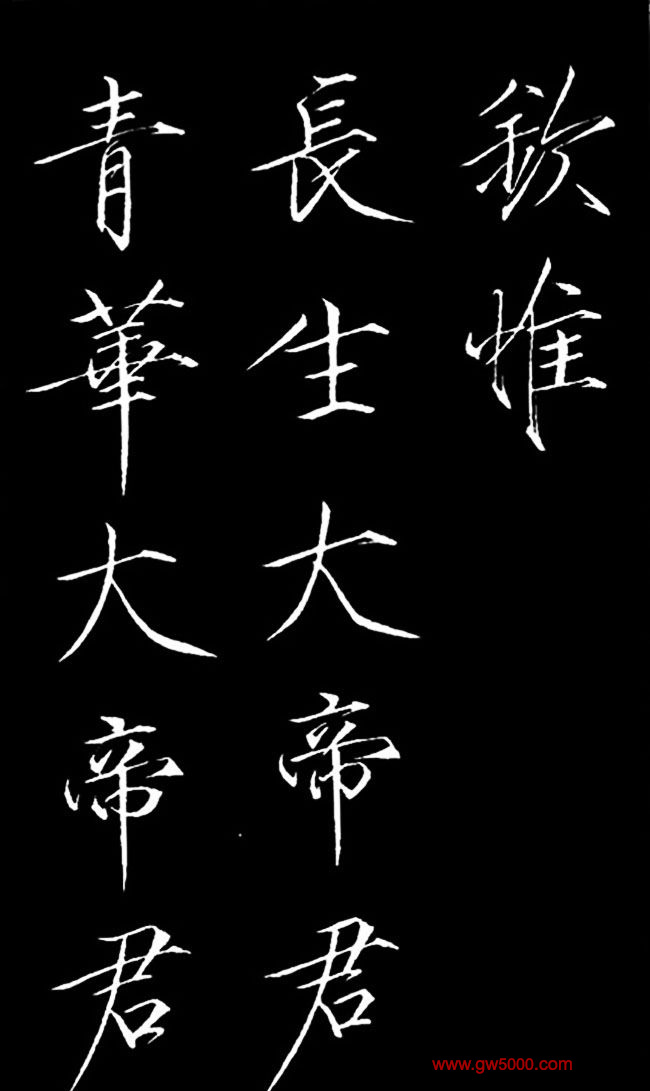 欽惟
長生大帝君
青華大帝君
www.gw5000.com